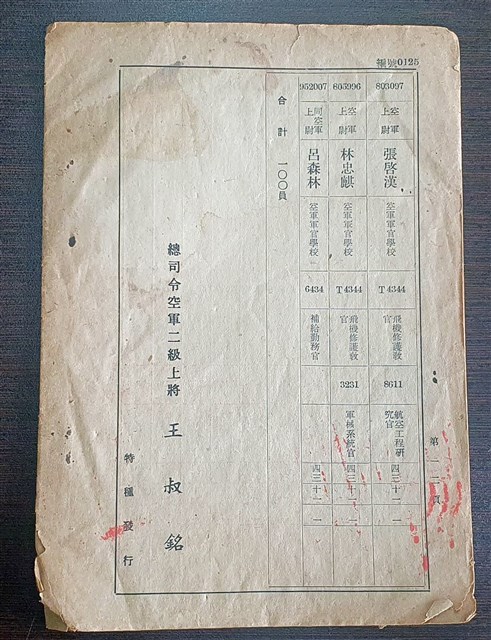 編號0125
803097 空軍上尉 張啓漢 空軍軍官學校 T4344 飛機修護教官 8611 航空工程研究官 四三 十二 一
805996 空軍上尉 林忠麒 空軍軍官學校 T4344 飛機修護教官 3231 軍械系統官 四三 十二 一
952007 同空軍上尉 呂森林 空軍軍官學校 6434 補給勤務官 四三 十二 一
合計 一〇〇員
總司令空軍二級上將 王叔銘
特種發行
第一二頁